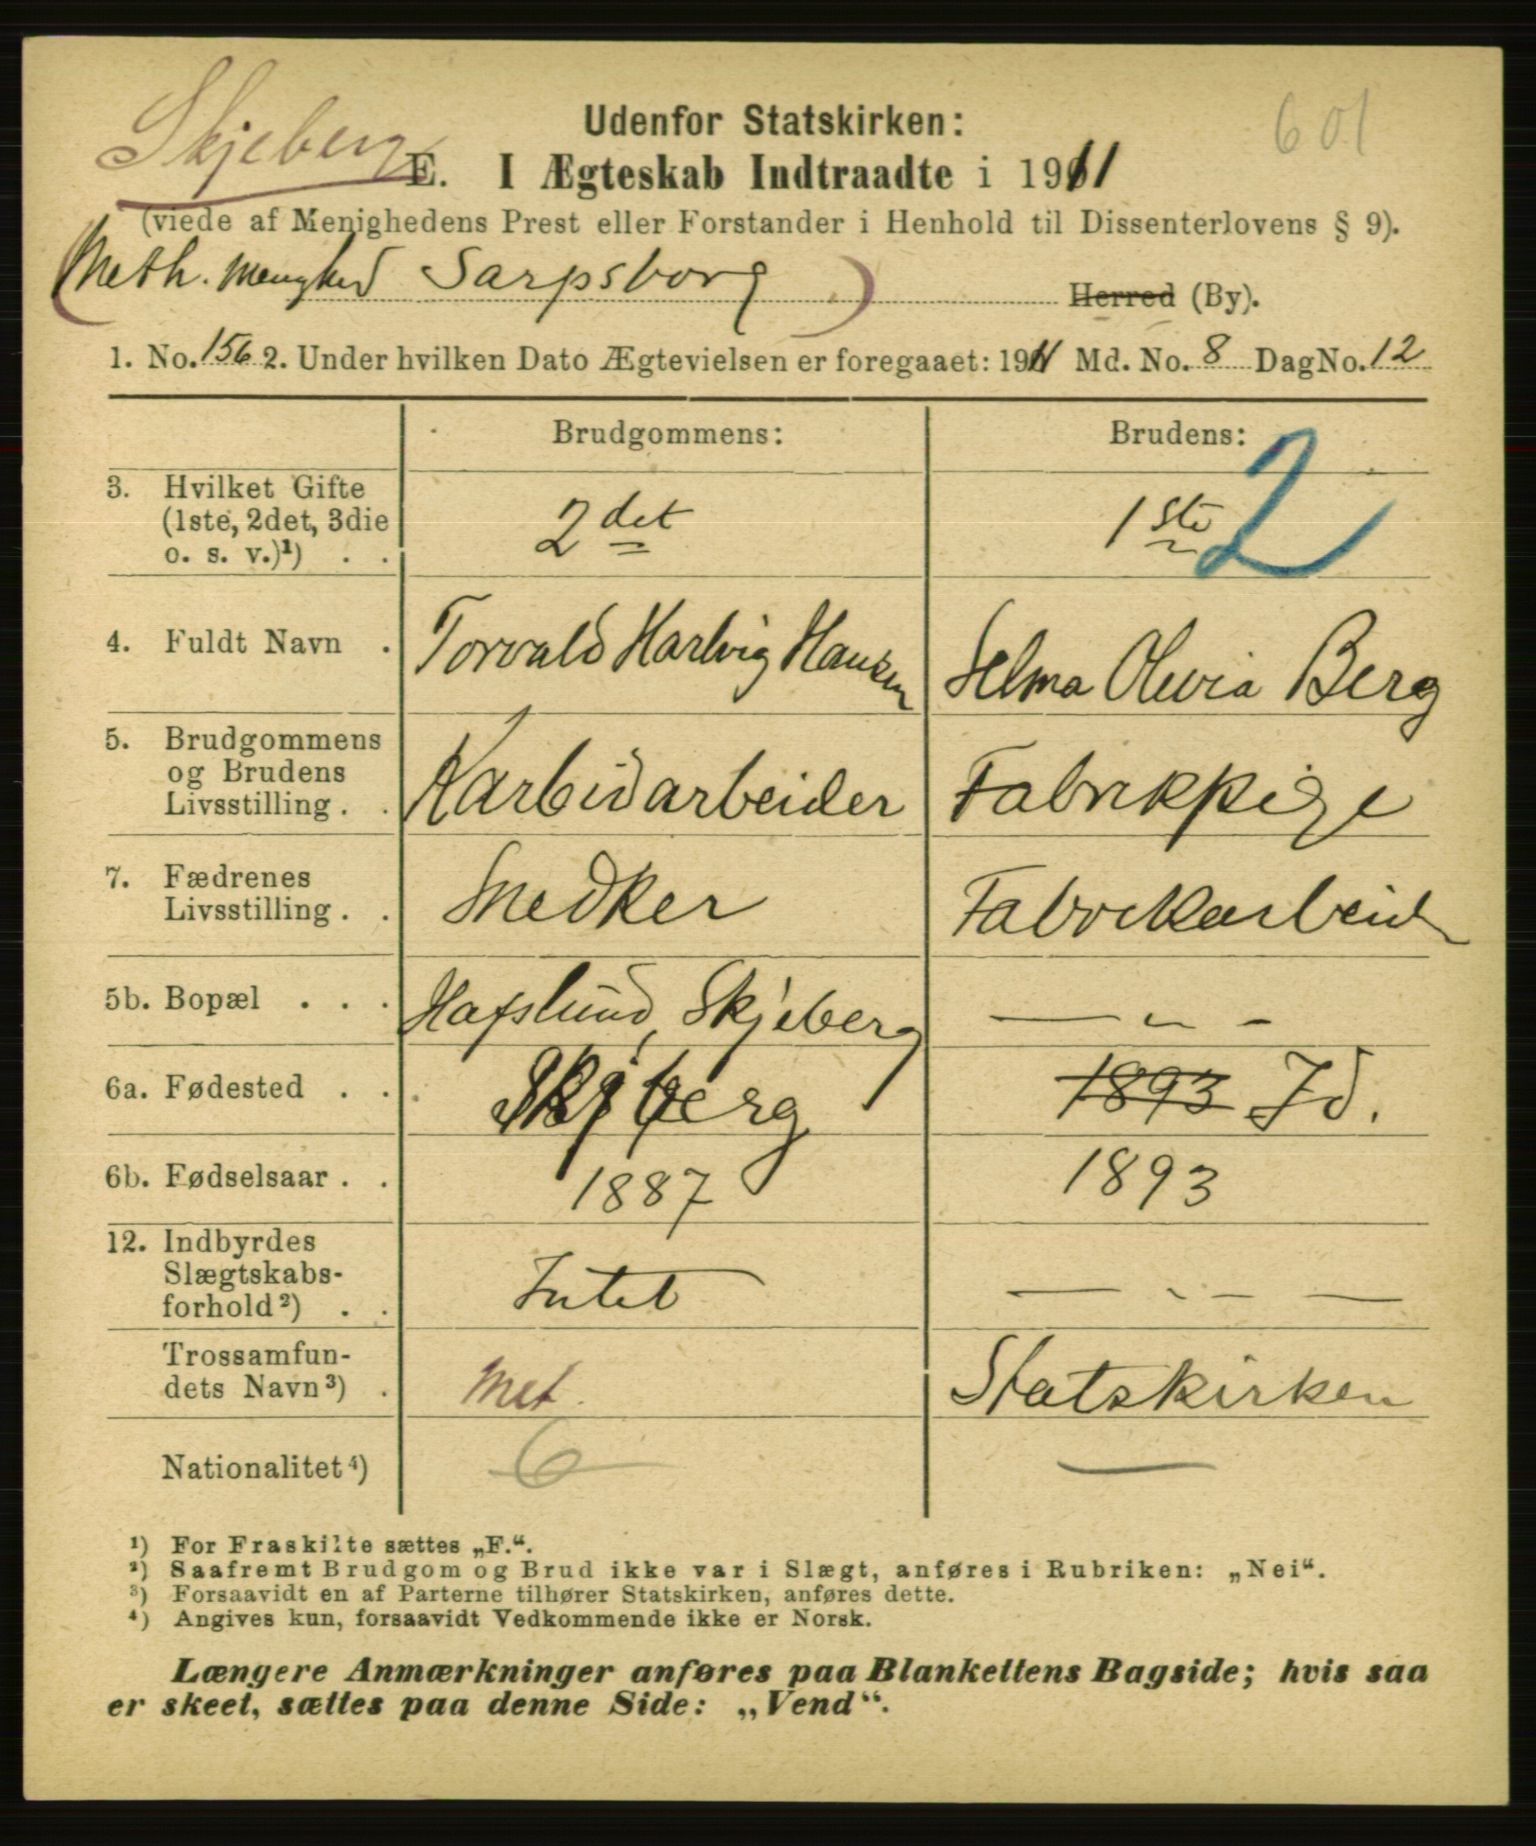 Skjeberg
601
Udenfor Statskirken:
E. I Ægteskab Indtraadte i 1911
(viede af Menighedens Prest eller Forstander i Henhold til Dissenterlovens § 9).
(Meth. Menighed Sarpsborg) Herred (By).
1. No. 156 2. Under hvilken Dato Ægtevielsen er foregaaet: 1911 Md. No. 8 Dag No. 12
Brudgommens: Brudens:
2
3. Hvilket Gifte
(1ste, 2det, 3die
o. s. v.)¹) . . 2det 1ste
4. Fuldt Navn . Torvald Hartvig Hansen Selma Olevia Berg
5. Brudgommens
og Brudens
Livsstilling . . Karbidarbeider Fabrikkpige
7. Fædrenes
Livsstilling . . Snedker Fabrikarbeider
5b. Bopæl . . . Hafslund, Skjeberg — „ –
6a. Fødested . . Skjeberg 1893 Id.
6b. Fødselsaar . . 1887 1893
12. Indbyrdes
Slægtskabs-
forhold²) . . Intet — „ – —
Trossamfun-
dets Navn³) . Met. Statskirken
Nationalitet⁴) 6 —
¹) For Fraskilte sættes „F.“.
²) Saafremt Brudgom og Brud ikke var i Slægt, anføres i Rubriken: „Nei“.
³) Forsaavidt en af Parterne tilhører Statskirken, anføres dette.
⁴) Angives kun, forsaavidt Vedkommende ikke er Norsk.
Længere Anmærkninger anføres paa Blankettens Bagside; hvis saa
er skeet, sættes paa denne Side: „Vend“.